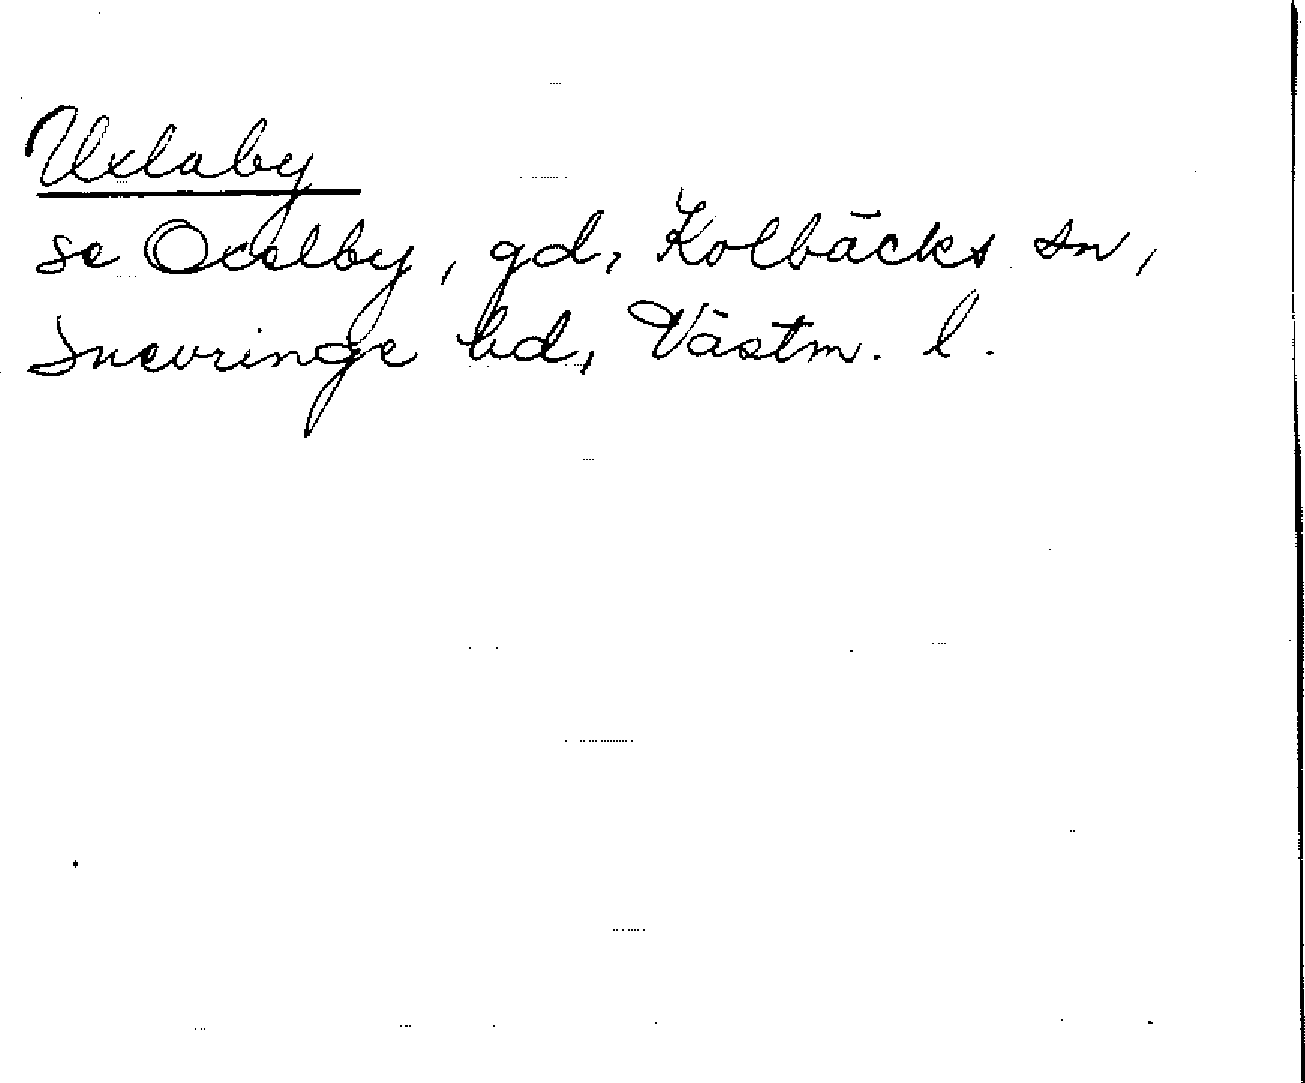 Uxlaby
se Odelby, gd, Kolbäcks sn,
Snevringe hd, Västm. l.